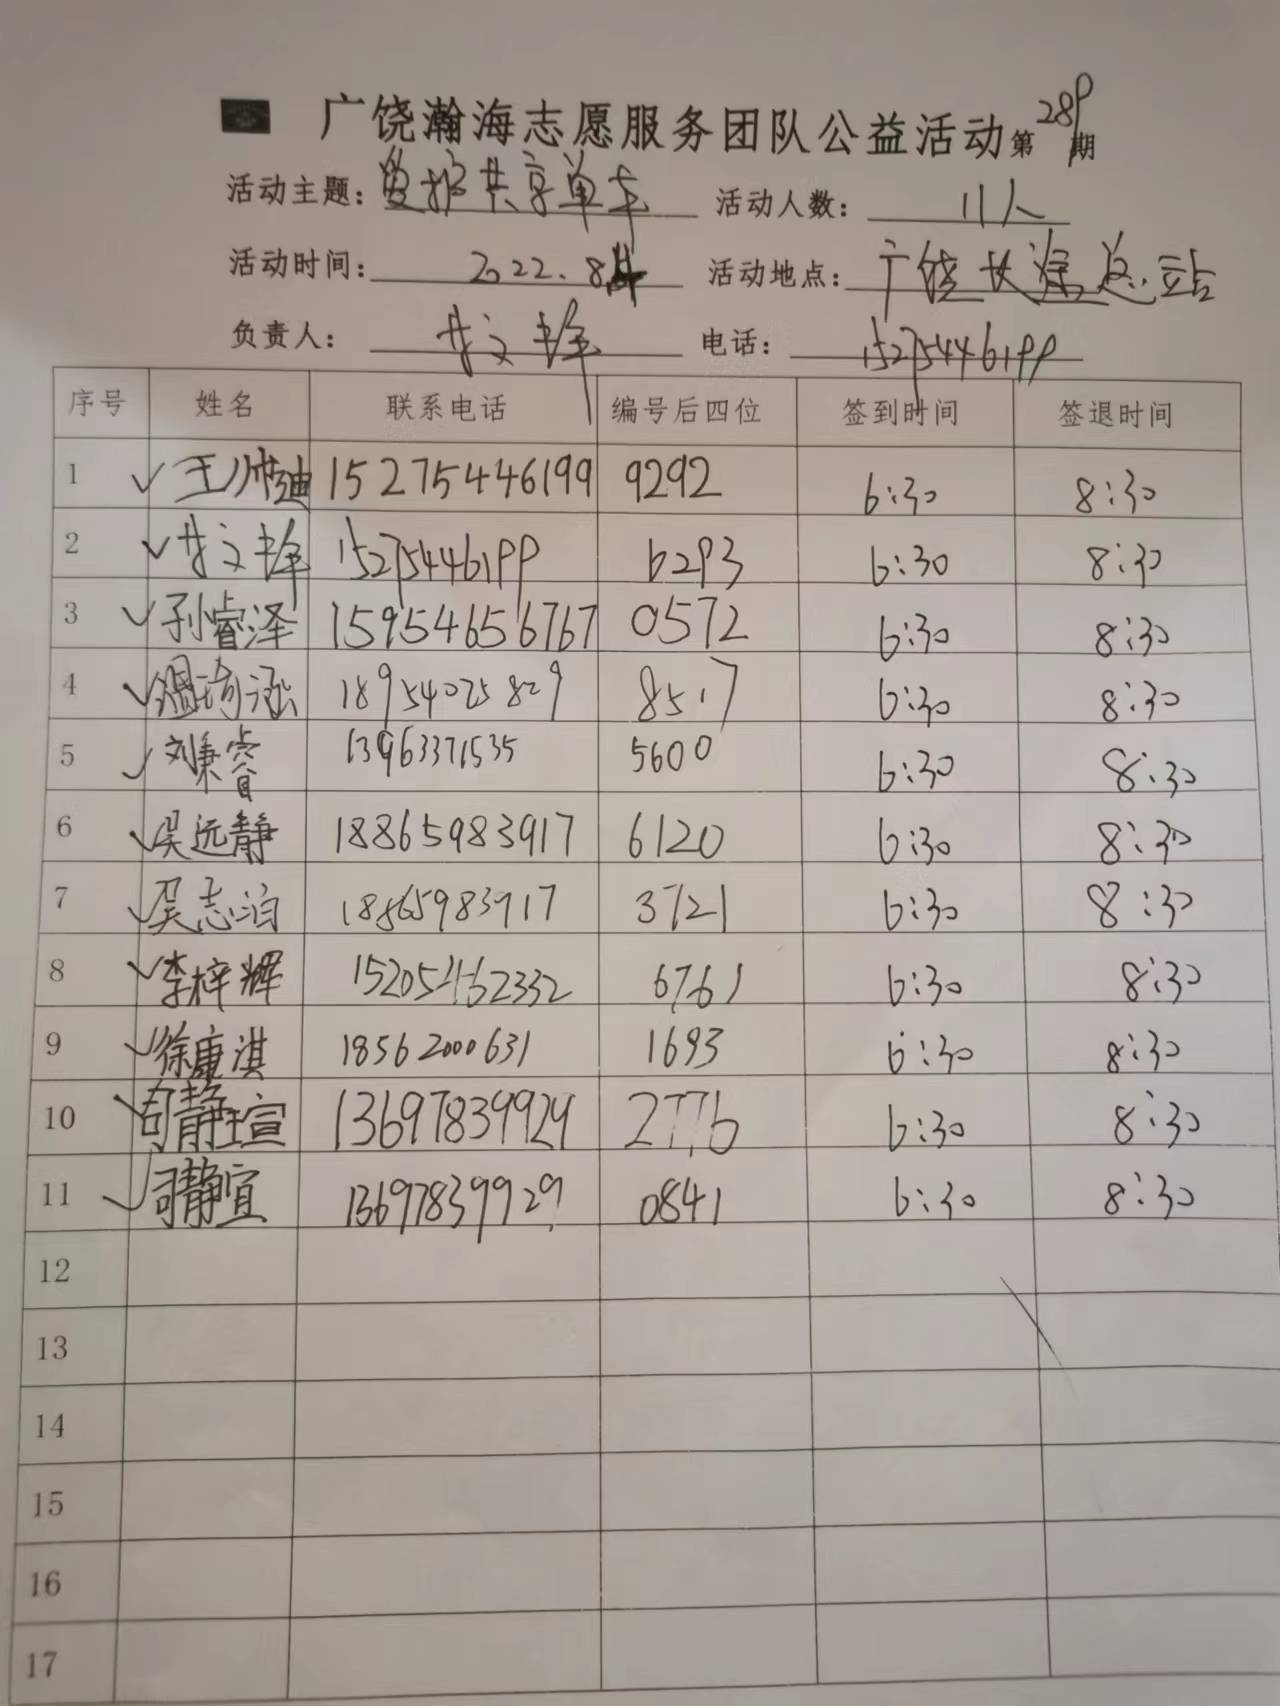 广饶瀚海志愿服务团队公益活动第289期
活动主题：爱护共享单车 活动人数：11人
活动时间：2022.8 活动地点：广饶长途总站
负责人： 文 电话：15275446199
序号 姓名 联系电话 编号后四位 签到时间 签退时间
1 王帅迪 15275446199 9292 6:30 8:30
2 文 15275446199 6293 6:30 8:30
3 孙睿泽 15954656767 0572 6:30 8:30
4 温琦泓 18954025829 8517 6:30 8:30
5 刘秉睿 13963371535 5600 6:30 8:30
6 吴远静 18865983917 6120 6:30 8:30
7 吴志泊 18865983917 3721 6:30 8:30
8 李梓辉 15205462332 6761 6:30 8:30
9 徐康淇 18562000631 1693 6:30 8:30
10 司静瑄 13697839929 2776 6:30 8:30
11 司静宜 13697839929 0841 6:30 8:30
12
13
14
15
16
17